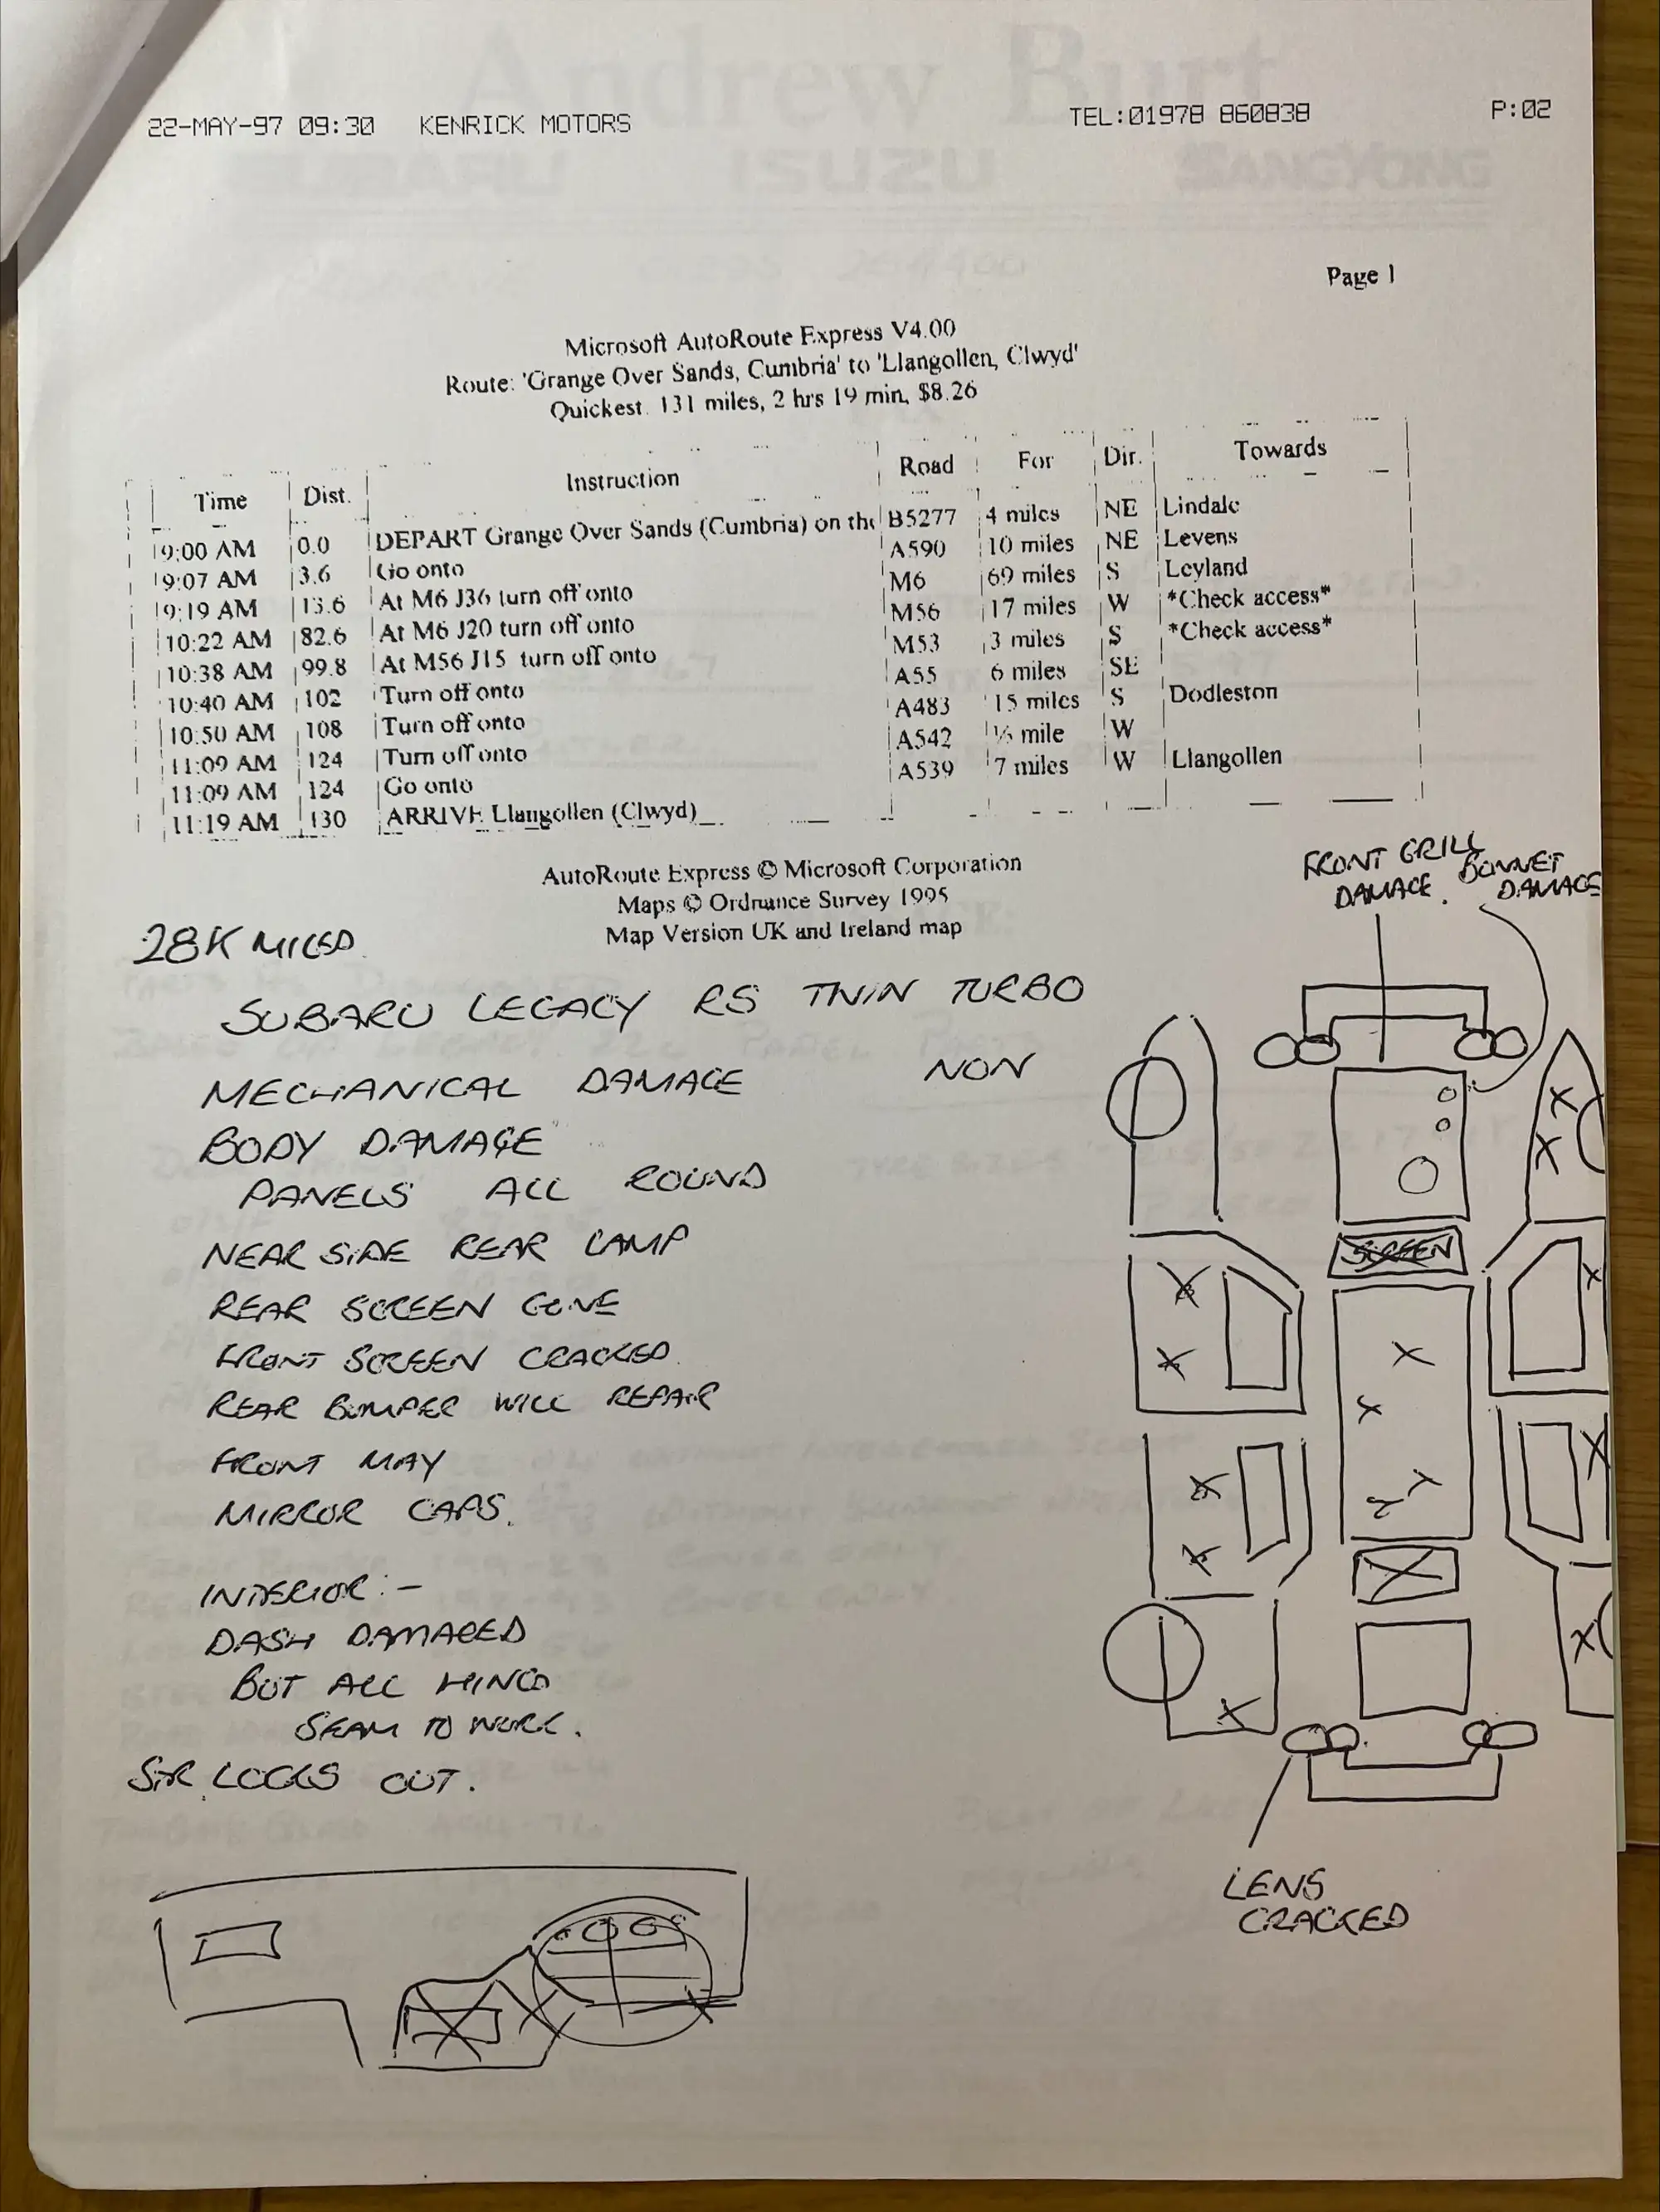 Andrew Burt
22-MAY-97 09:30 KENRICK MOTORS TEL:01978 860838 P:02
SUBARU ISUZU SSANGYONG
Page 1
Microsoft AutoRoute Express V4.00
Route: 'Grange Over Sands, Cumbria' to 'Llangollen, Clwyd'
Quickest. 131 miles, 2 hrs 19 min, $8.26
Time Dist. Instruction Road For Dir. Towards
9:00 AM 0.0 DEPART Grange Over Sands (Cumbria) on the B5277 4 miles NE Lindale
9:07 AM 3.6 Go onto A590 10 miles NE Levens
9:19 AM 13.6 At M6 J36 turn off onto M6 69 miles S Leyland
10:22 AM 82.6 At M6 J20 turn off onto M56 17 miles W *Check access*
10:38 AM 99.8 At M56 J15 turn off onto M53 3 miles S *Check access*
10:40 AM 102 Turn off onto A55 6 miles SE
10:50 AM 108 Turn off onto A483 15 miles S Dodleston
11:09 AM 124 Turn off onto A542 ½ mile W
11:09 AM 124 Go onto A539 7 miles W Llangollen
11:19 AM 130 ARRIVE Llangollen (Clwyd)
AutoRoute Express © Microsoft Corporation
Maps © Ordnance Survey 1995
Map Version UK and Ireland map
FRONT GRILL
DAMAGE.
BONNET
DAMAGE
28K MILES
SUBARU LEGACY RS TWIN TURBO
MECHANICAL DAMAGE NON
BODY DAMAGE
PANELS ALL ROUND
NEAR SIDE REAR LAMP
REAR SCREEN GONE
FRONT SCREEN CRACKED
REAR BUMPER WILL REPAIR
FRONT MAY
MIRROR CAPS.
SCREEN
INTERIOR:-
DASH DAMAGED
BUT ALL
SEAM TO WORK.
LOCKS OUT.
LENS
CRACKED